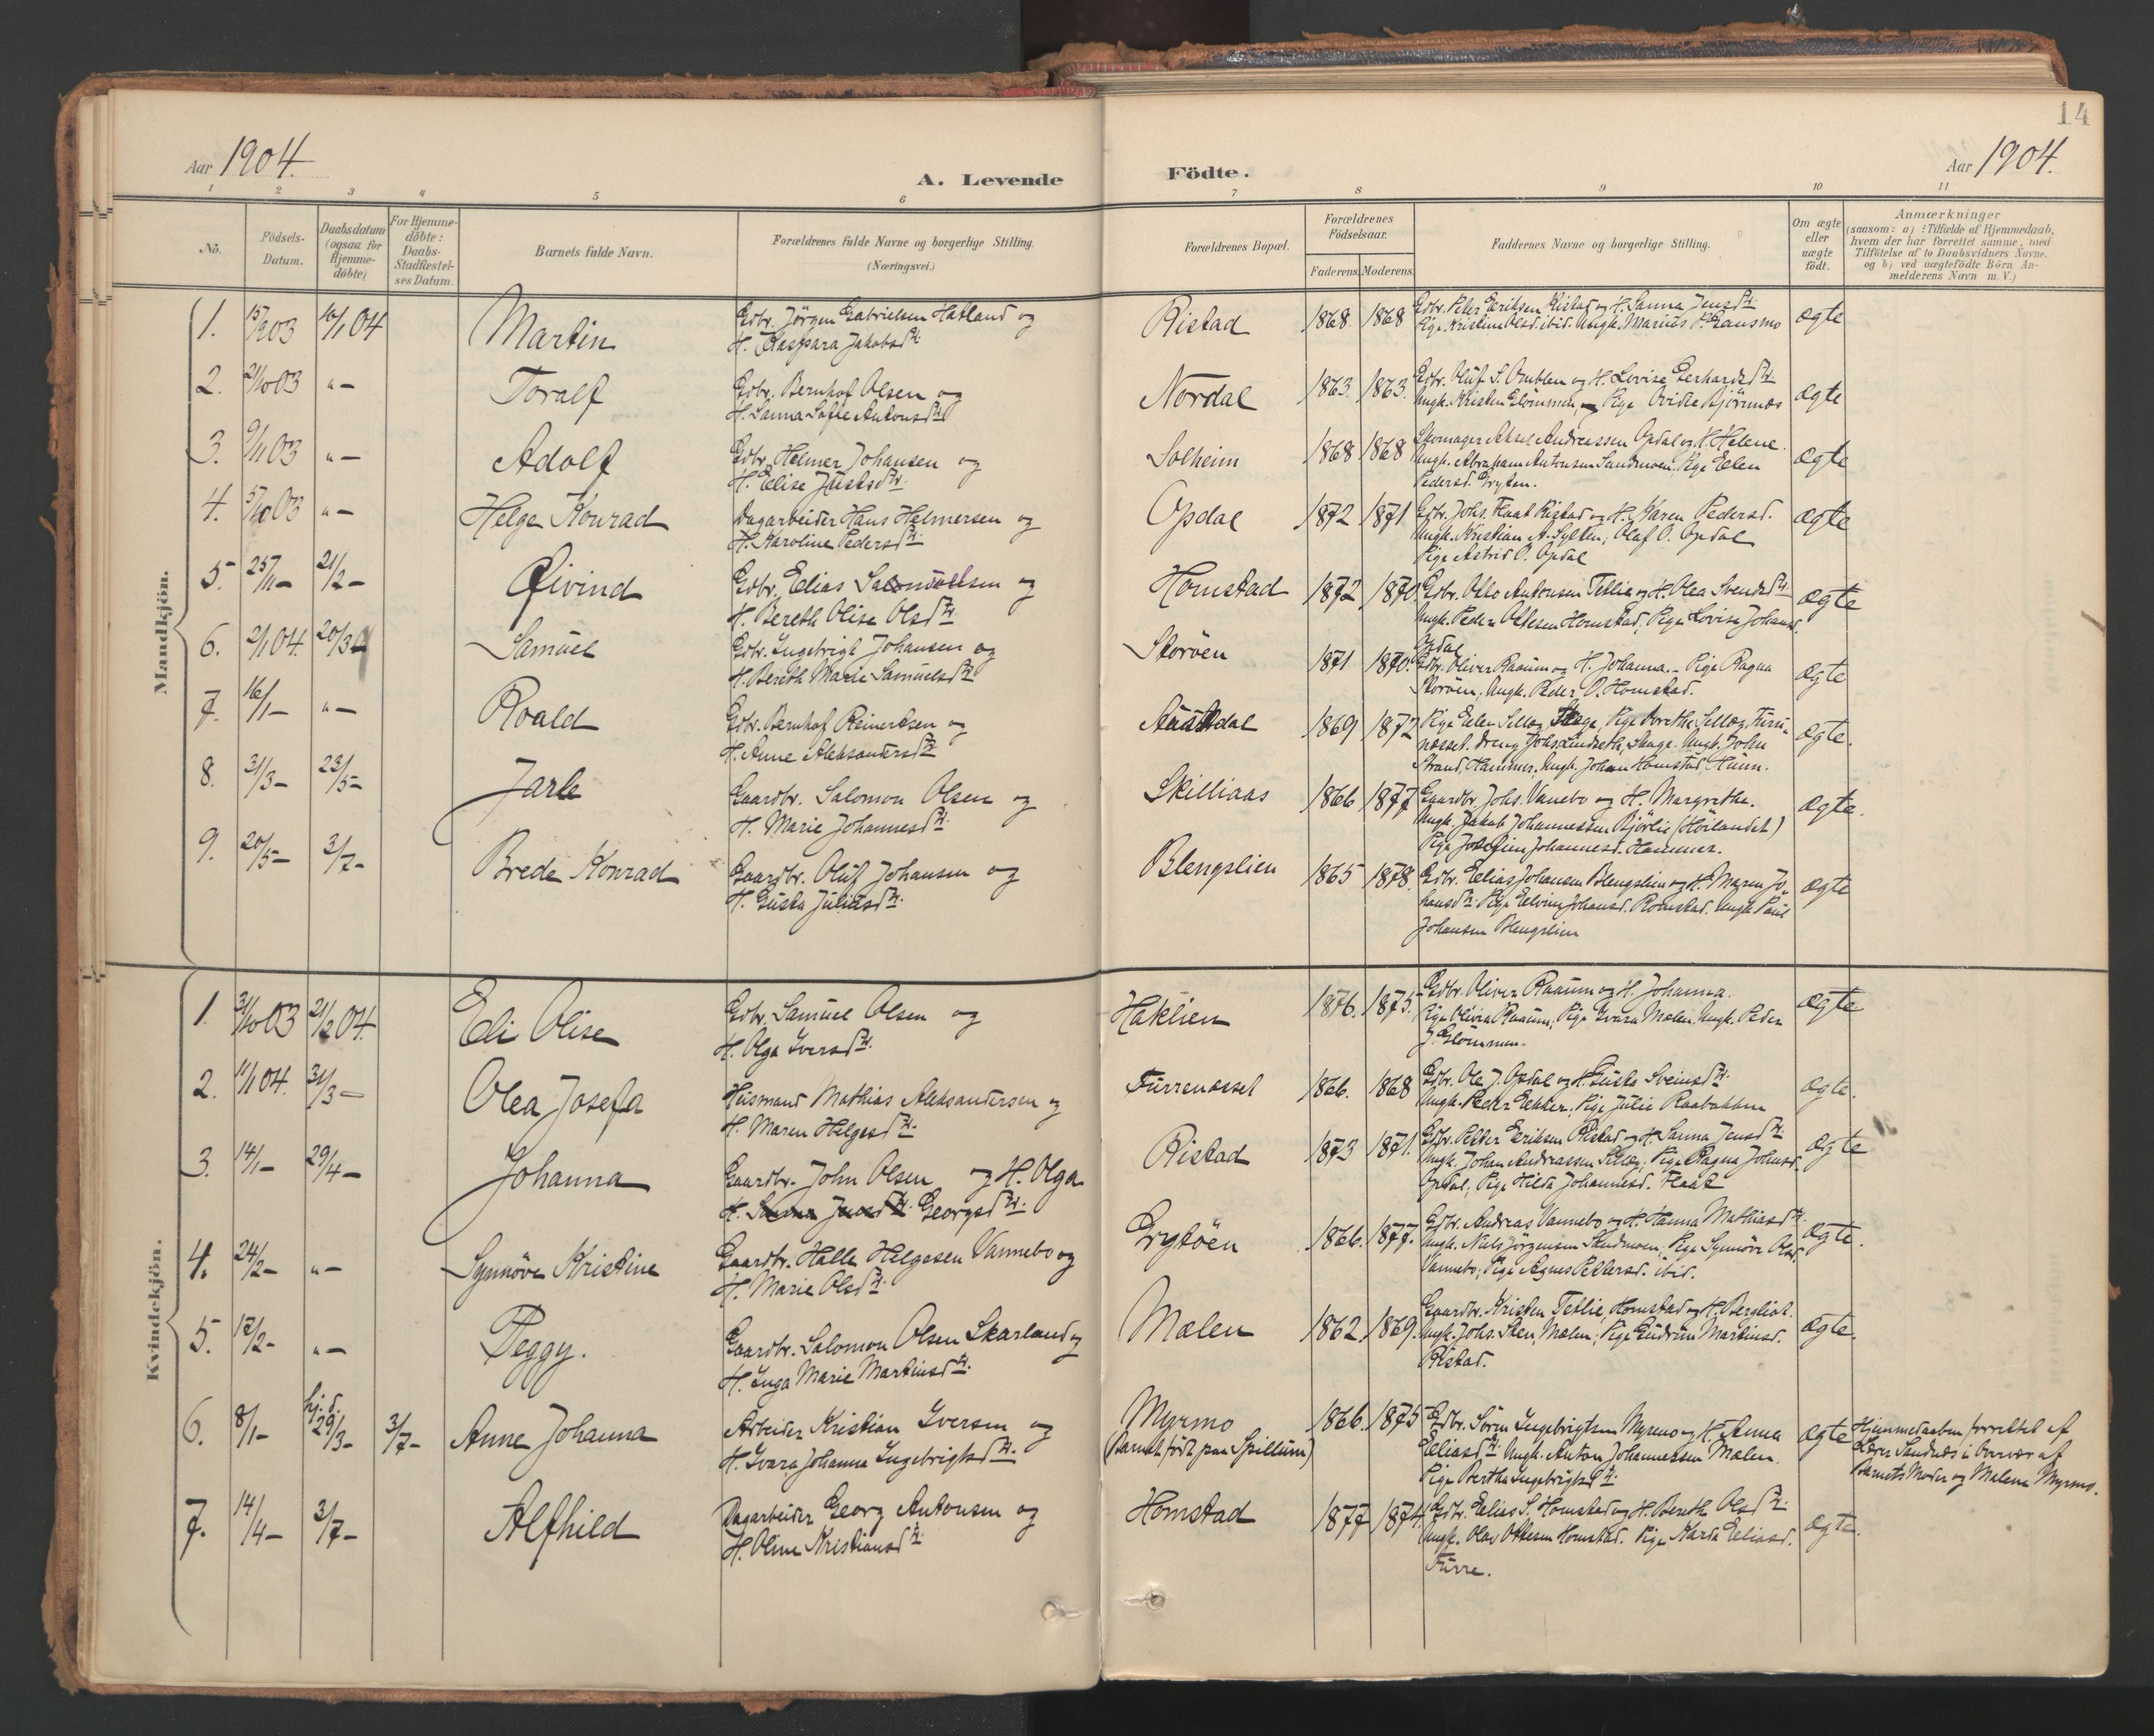 14
Aar 1904.
A. Levende Födte.
Aar 1904.
1 2 3 4 5 6 7 8 9 10 11
No.
Födsels-Datum.
Daabsdatum (ogsaa for Hjemme-döbte)
For Hjemme-döbte: Daabs-Stadfæstel-ses Datum.
Barnets fulde Navn.
Forældrenes fulde Navne og borgerlige Stilling. (Næringsvei.)
Forældrenes Bopæl.
Forældrenes Födselsaar.
Faderens. Moderens.
Faddernes Navne og borgerlige Stilling.
Om ægte eller uægte födt.
Anmærkninger
(saasom: a) i Tilfælde af Hjemmedaab, hvem der har forrettet samme, med Tilföielse af to Daabsvidners Navne. og b) ved uægtefödte Börn An-melderens Navn m. V.)
Mandkjön.
1. 15/9 03 10/1 04 Martin
Gdbr. Jörgen Gabrielsen Hatland og
H. Kaspara Jakobsdtr.
Ristad 1868. 1868
Gdbr. Peter Eriksen Ristad og H. Sanna Jensdtr.
Pige Kristine Olsd. ibid. Ungk. Marius P. Gansmo
ægte
2. 21/10 03 "– Toralf
Gdbr. Bernhof Olsen og
H. Sanna Sofie Antonsdtr.
Nordal 1863. 1863.
Gdbr. Oluf S. Dublen og H. Lovise Gerhardsdtr.
Ungk. Kristen Glömmen, Pige Ovidia Björnnes
ægte
3. 9/11 03 "– Adolf
Gdbr. Helmer Johansen og
H. Elise Justsdtr.
Solheim 1868 1868
Skomager Aksel Andreassen Opdal og H. Helene.
Ungk. Abraham Antonsen Sandmoen, Pige Ellen
Pedersd. Gryten.
ægte
4. 5/10 03 "– Helge Konrad
Dagarbeider Hans Helmersen og
H. Karoline Pedersdtr.
Opdal 1872 1871
Gdbr. Johs. Flaat Ristad og H. Karen Pedersd.
Ungk. Kristian A. Sylten, Olaf O. Opdal
Pige Astrid O. Opdal
ægte
5. 25/11– 21/2– Øivind
Gdbr. Elias Salomonsen og
H. Bereth Olise Olsdtr.
Homstad 1872 1870
Gdbr. Otto Antonsen Tetlie og H. Olea Svendsdtr.
Ungk. Peder Ottesen Homstad, Pige Lovise Johansd.
Opdal
ægte
6. 2/1 04. 20/3 Samuel
Gdbr. Ingebrigt Johansen og
H. Bereth Marie Samuelsdtr.
Storöen 1871 1870.
Gdbr. Oliver Raaum og H. Johanna. – Pige Ragna
Storöen, Ungk. Peder O. Homstad.
ægte
7. 16/1– "– Roald
Gdbr. Bernhof Reinertsen og
H. Anne Aleksandersdtr.
1869 1872
Pige Ellen Sellæg, Skage, Pige Dorethe Sellæg, Furre-
næsset. Dreng Johs. Lindseth, Skage. Ungk. John
Strand, Hammer, Ungk. Johan Homstad, Hunn.
ægte.
8. 31/3– 23/5– Jarle
Gaardbr. Salomon Olsen og
H. Marie Johannesdtr.
Skilliaas 1866 1877
Gaardbr. Johs. Vannebo og H. Margrethe.
Ungk. Jakob Johannessen Björlie (Höilandet)
Pige Josefine Johannesd. Hammer.
ægte.
9. 20/5– 3/7– Brede Konrad
Gaardbr. Oluf Johansen og
H. Gusta Juliusdtr.
Blengslien 1865 1878.
Gdbr. Elias Johansen Blengslien og H. Maren Jo-
hansdtr. Pige Elvine Johansd. Romstad. Ungk. Paul
Johansen Blengslien
ægte
Kvindekjön.
1. 31/10 03 21/2 04. Eli Olise
Gdbr. Samuel Olsen og
H. Olga Iversdtr.
Haklien 1876. 1875.
Gdbr. Oliver Raaum og H. Johanna.
Pige Olivia Raaum, Pige Ivara Mælen, Ungk. Peder
J. Glömmen.
ægte
2. 11/1 04. 31/3– Olea Josefa
Husmand Mathias Aleksandersen og
H. Maren Helgesdtr.
Furrenesset 1866. 1868
Gdbr. Ole J. Opdal og H. Gusta Sveinsdtr.
Ungk. Peder Ekker, Pige Julie Raabakken
ægte.
3. 14/1– 29/4– Johanna
Gaardbr. John Olsen og H. Olga
H. Sanna Jensdtr. Georgsdtr.
Ristad 1873 1871.
Gdbr. Petter Eriksen Ristad og H. Sanna Jensdtr.
Ungk. Johan Andreassen Sellæg; Pige Ragna Johnsd.
Opdal, Pige Hilda Johannesd. Flaat
ægte
4. 24/2– "– Synnöve Kristine
Gaardbr. Halle Helgesen Vannebo og
H. Marie Olsdtr.
Grytöen 1866. 1877.
Gdbr. Andreas Vannebo og H. Hanna Mathiasdtr.
Ungk. Niels Jörgensen Sandmoen, Pige Synnöve Olsd.
Vannebo, Pige Agnes Pettersd. ibid.
ægte.
5. 12/2– "– Peggy.
Gaardbr. Salomon Olsen Skarland og
H. Inga Marie Martinusdtr.
Mælen 1862 1869.
Gaardbr. Kristen Tetlie, Homstad og H. Bergliot.
Ungk. Johs. Sten, Mælen; Pige Gudrun Martinsd.
Ristad.
ægte.
6. 8/1– hj. d. 29/3– 3/7– Anne Johanna
Arbeider Kristian Iversen og
H. Ivara Johanna Ingebrigtsdtr.
Myrmo
(Barnet födt paa Spillum)
1866. 1875
Gdbr. Sören Ingebrigtsen Myrmo og H. Anna
Eliasdtr. Ungk. Anton Johannessen Mælen.
Pige Bertha Ingebrigtsdtr.
ægte
Hjemmedaaben forrettet af
Lærer Sandnæs i Overvær af
Barnets Moder og Malene Myrmo.
7. 14/4– 3/7– Alfhild
Dagarbeider Georg Antonsen og
H. Oline Kristiansdtr.
Homstad 1877 1874.
Gdbr. Elias S. Homstad og H. Bereth Olsdtr.
Ungk. Olav Ottesen Homstad. Pige Marta Eliasd.
Furre.
ægte.